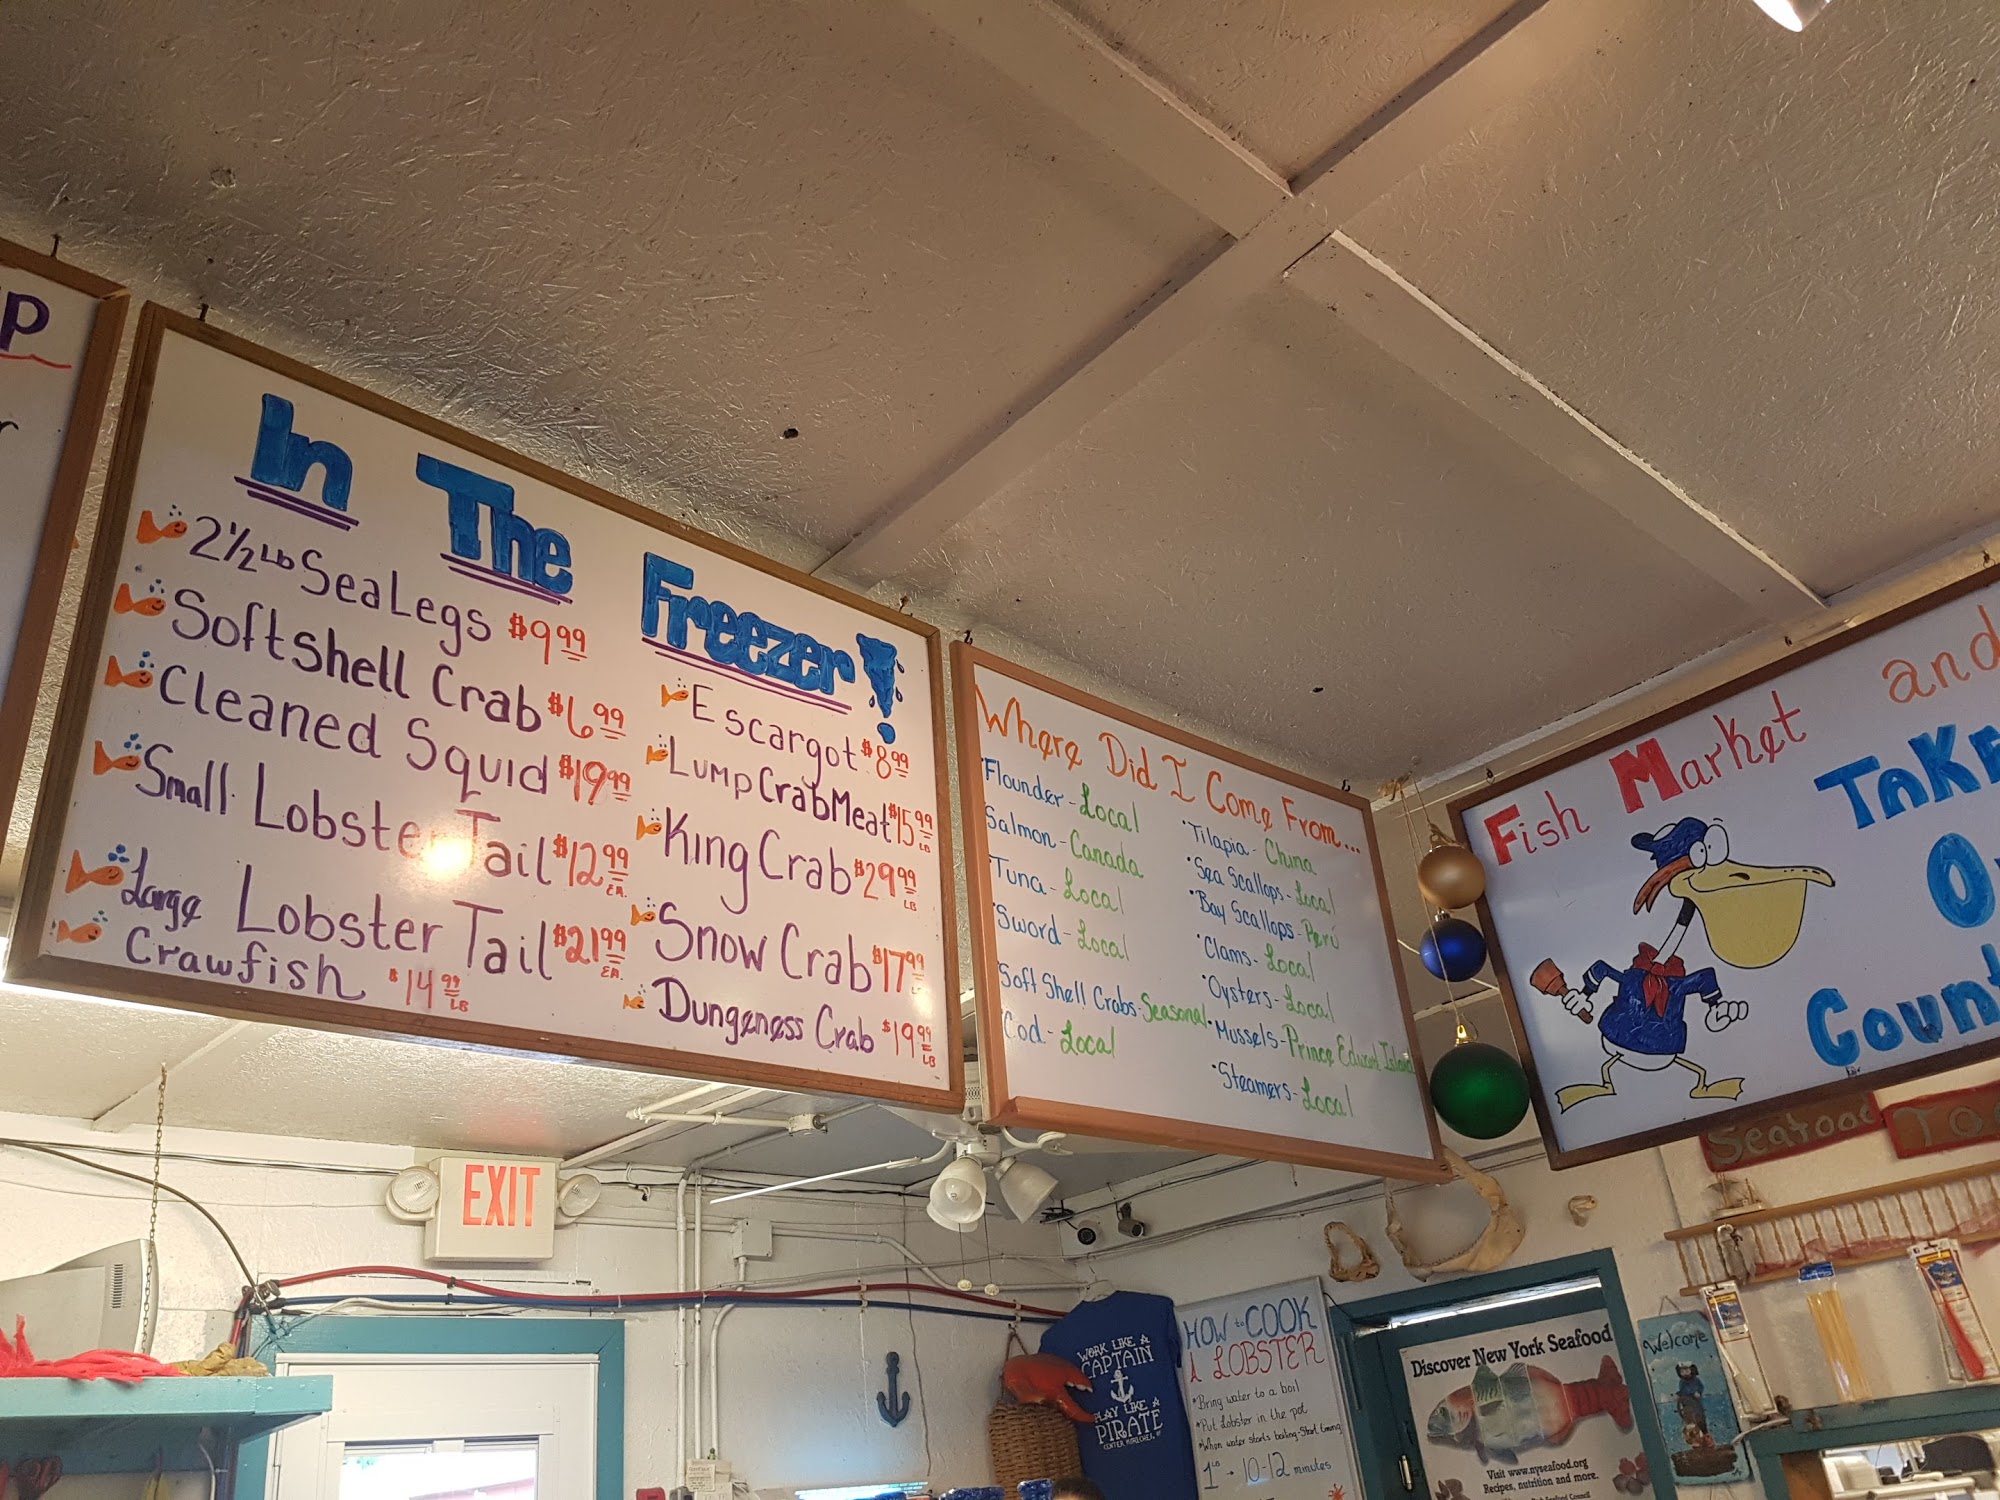 In The Freezer!
2½ Lb Sea Legs $9.99
Softshell Crab $6.99
Cleaned Squid $19.99
Small Lobster Tail $12.99 EA.
Large Lobster Tail $21.99 EA.
Crawfish $14.99 LB
Escargot $8.99
Lump Crab Meat $15.99 LB
King Crab $29.99 LB
Snow Crab $17.99
Dungeness Crab $19.99 LB
Where Did I Come From...
Flounder - Local
Salmon - Canada
Tuna - Local
Sword - Local
Soft Shell Crabs - Seasonal
Cod - Local
Tilapia - China
Sea Scallops - Local
Bay Scallops - Perú
Clams - Local
Oysters - Local
Mussels - Prince Edward Island
Steamers - Local
Fish Market and
Take
Seafood
EXIT
WORK LIKE A
CAPTAIN
PLAY LIKE A
PIRATE
CENTER MORICHES, NY
HOW to COOK
A LOBSTER
Bring water to a boil
Put Lobster in the pot
When water starts boiling - Start timing
1 LB → 10-12 minutes
Discover New York Seafood
Visit www.nyseafood.org
Recipes, nutrition and more.
Welcome